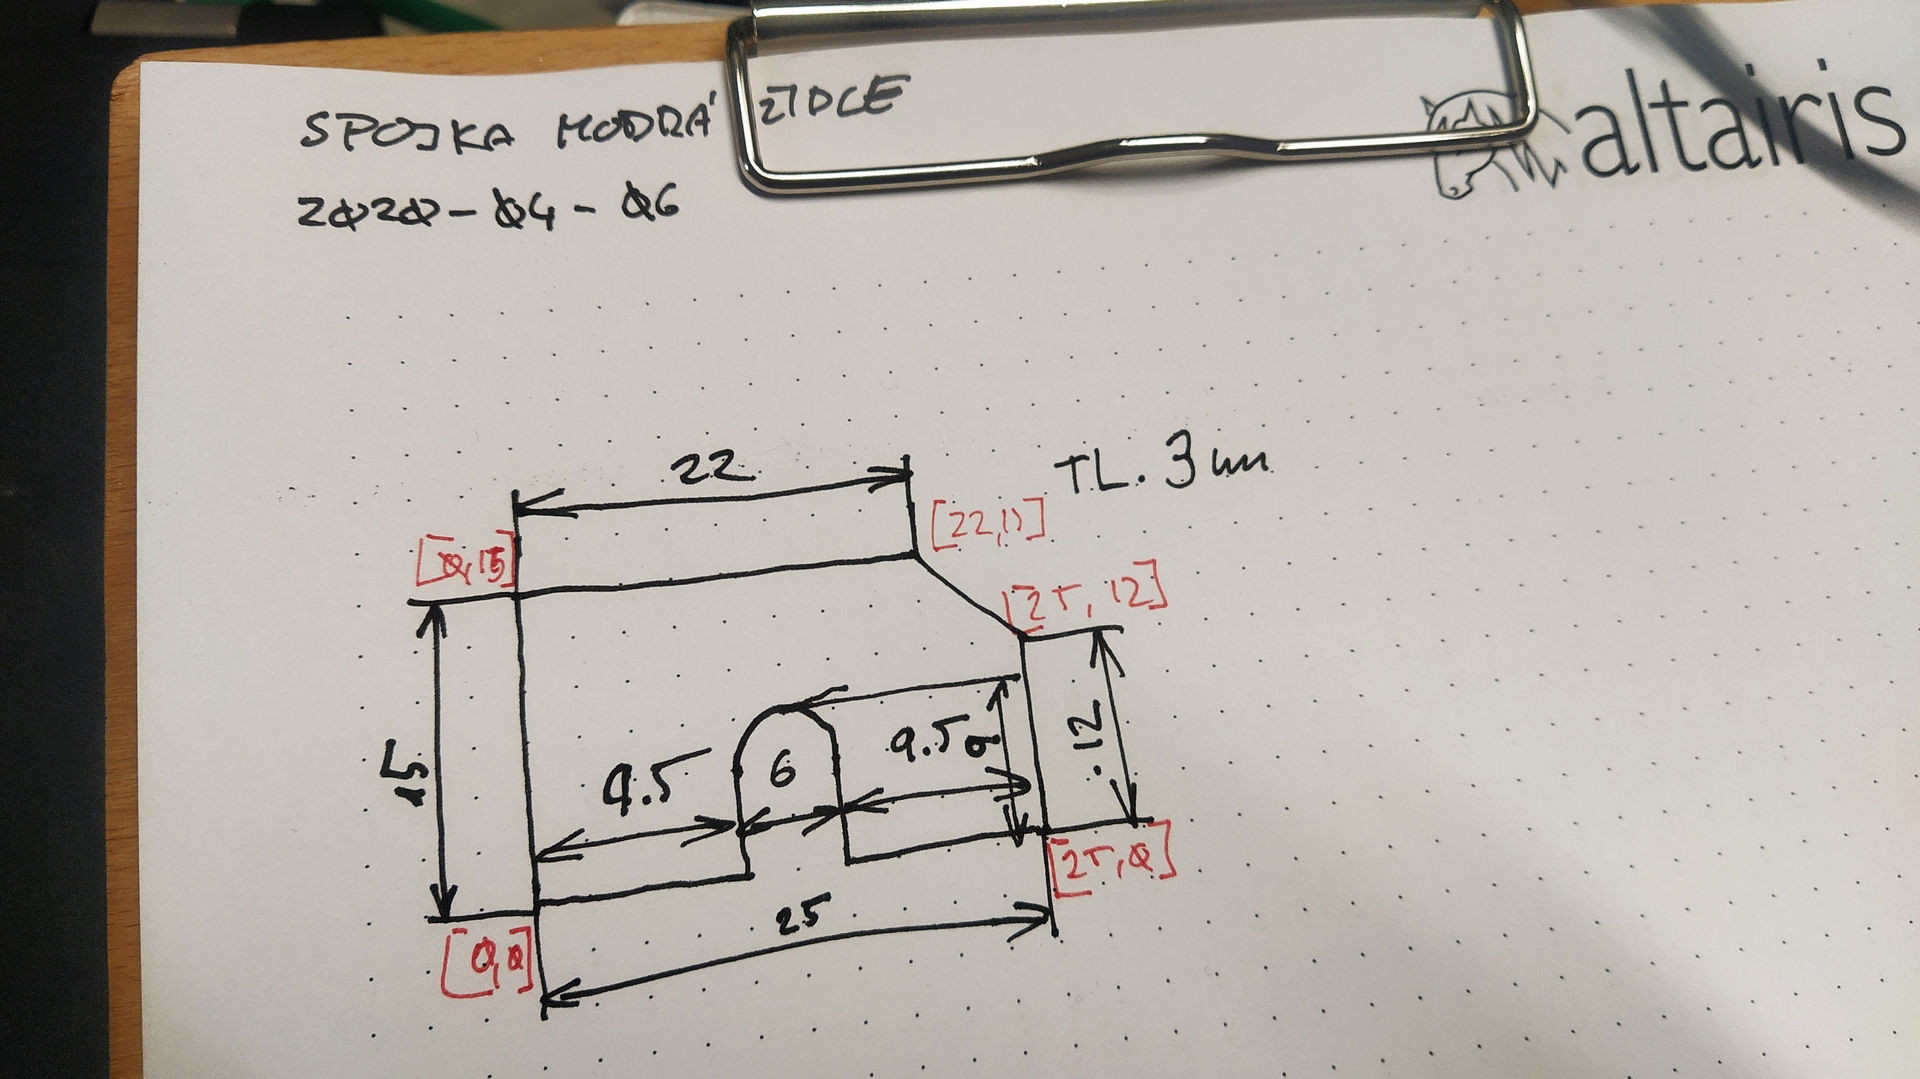 SPOJKA MODRÁ ŽIDLE
altairis
2020-04-06
22
TL. 3 mm
[0,15]
[25, 12]
15
9.5
6
9.5
9
12
[25,0]
25
[0,0]